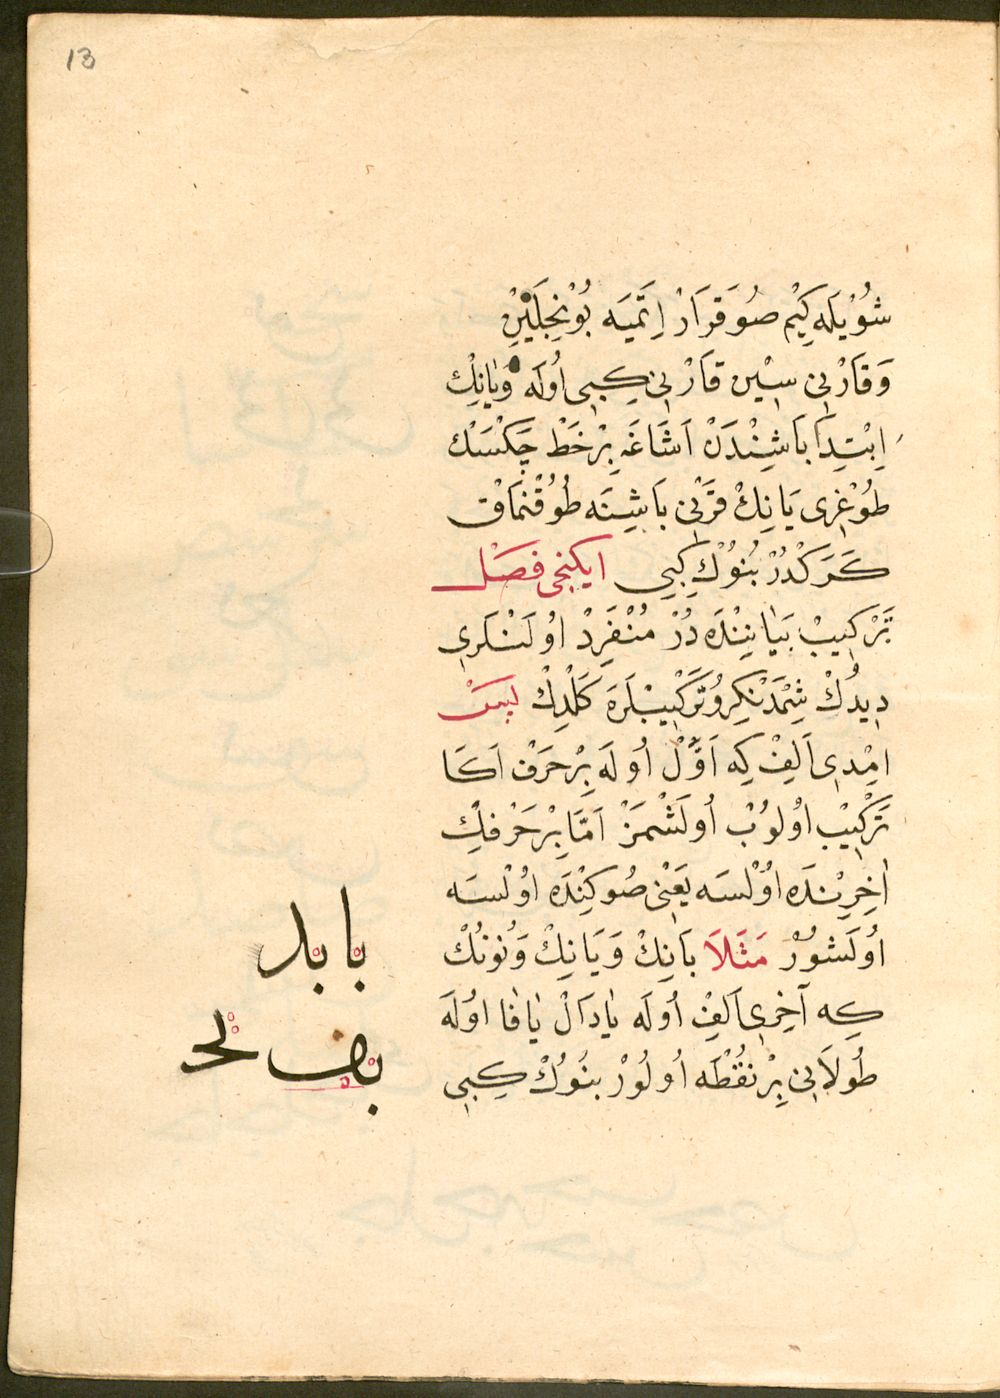 13
شُوْيلَه كِيْم صُو قَرَارْ اِتَمِيَه بُوْنجِلَيْنْ
وَقَارْنِى سِيْن قَارْنِى كِبِى اُولَه وَيَانِكْ
اِبْتِدَا بَاشِنْدَنْ اَشَاغَه بِرْخَطْ چَكْسَكْ
طُوْغِرِى يَانِكْ قَرْنِى بَاشِنَه طُوقُنْمَاقْ
كَرَكْدُرْ بُنُوكْ كِبِى ايكنجى فصَلْ
تَرْكِيبْ بَيَانِنْدَه دُرْ مُنْفَرِدْ اوُلَنْلَرِى
دِيدُكْ شِمْدَنْكِرُو تَرْكِيبْلَرَه كَلْدِكْ
اِمْدِى اَلِفْ كِه اَوَّلْ اُولَه بِرْحَرْفْ اَكَا
تَرْكِيبْ اوُلوُبْ اُولَشْمَزْ اَمَّا بِرْحَرْفِكْ
اٰخِرِنْدَه اوُلْسَه يَعْنِى صُوكِنْدَه اوُلْسَه
اُولَشُورْ مَثَلاَ بَانِكْ وَيَانِكْ وَنُونُكْ
كِه آخِرِى اَلِفْ اُولَه يَادَالْ يَافَا اوُلَه
طُولاَنِى بِرْنُقْطَه اُولُورْ بُنُوكْ كِبِى
با بد
بف